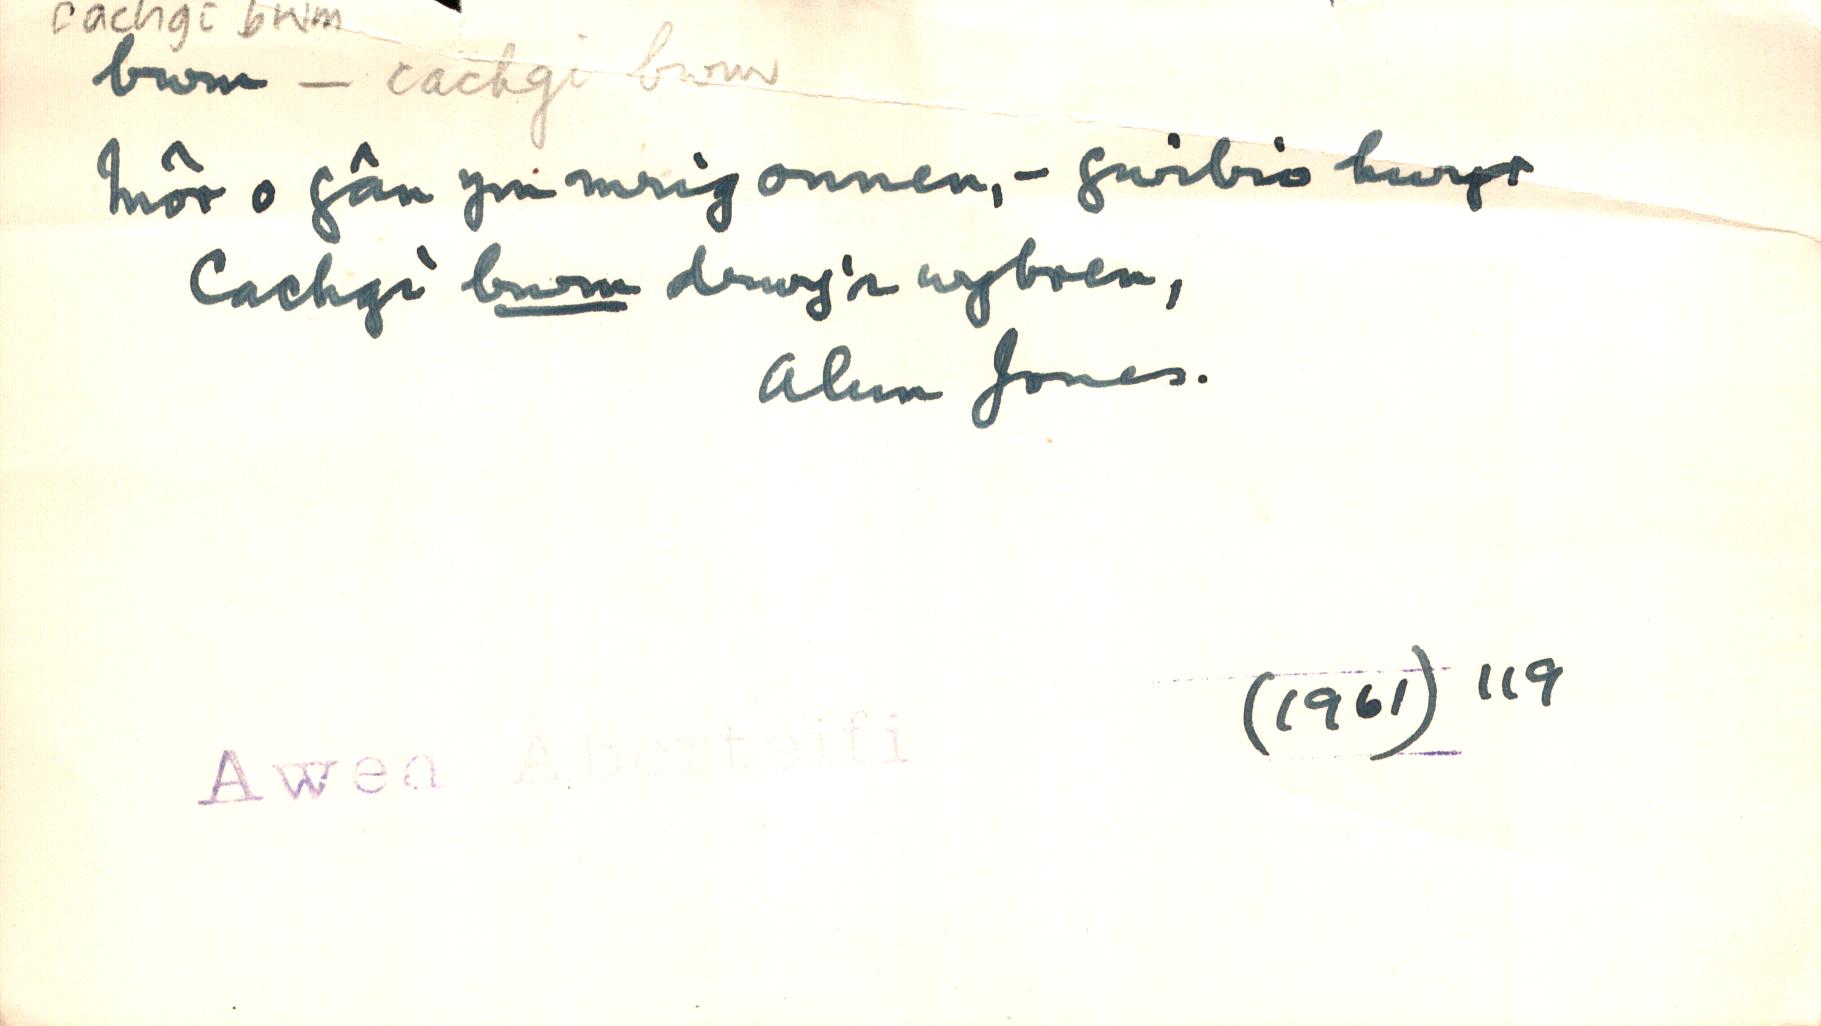 cachgi bwm
bwm – cachgi bwm
Môr o gân ym mrig onnen, – gwibio hwyr
Cachgi bwm drwy'r wybren,
Alun Jones.
(1961) 119
Awen Aberteifi